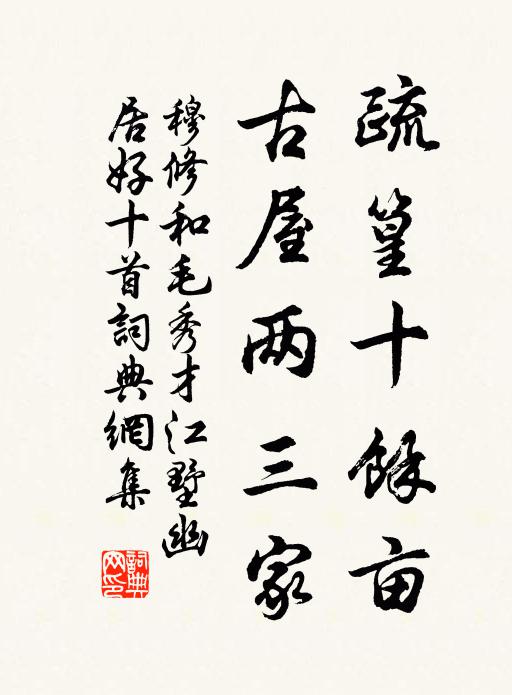 疏篁十餘亩
古屋两三家
穆修和毛秀才江墅幽
居好十首詞典網集
詞典
网印